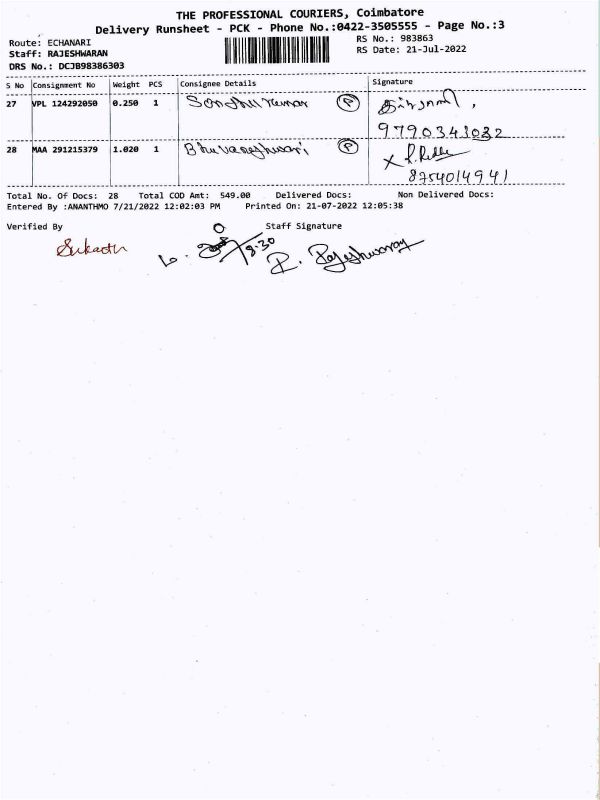 THE PROFESSIONAL COURIERS, Coimbatore
Delivery Runsheet - PCK - Phone No.:0422-3505555 - Page No.:3
Route: ECHANARI
RS No.: 983863
Staff: RAJESHWARAN
RS Date: 21-Jul-2022
DRS No.: DCJB98386303
S No Consignment No Weight PCS Consignee Details Signature
27 VPL 124292050 0.250 1 Kumar P
9790343032
28 MAA 291215379 1.020 1 Bhuvaneshwari P
8754014941
Total No. Of Docs: 28 Total COD Amt: 549.00 Delivered Docs: Non Delivered Docs:
Entered By :ANANTHMO 7/21/2022 12:02:03 PM Printed On: 21-07-2022 12:05:38
Verified By Staff Signature
8.30
R. Rajeshwaran